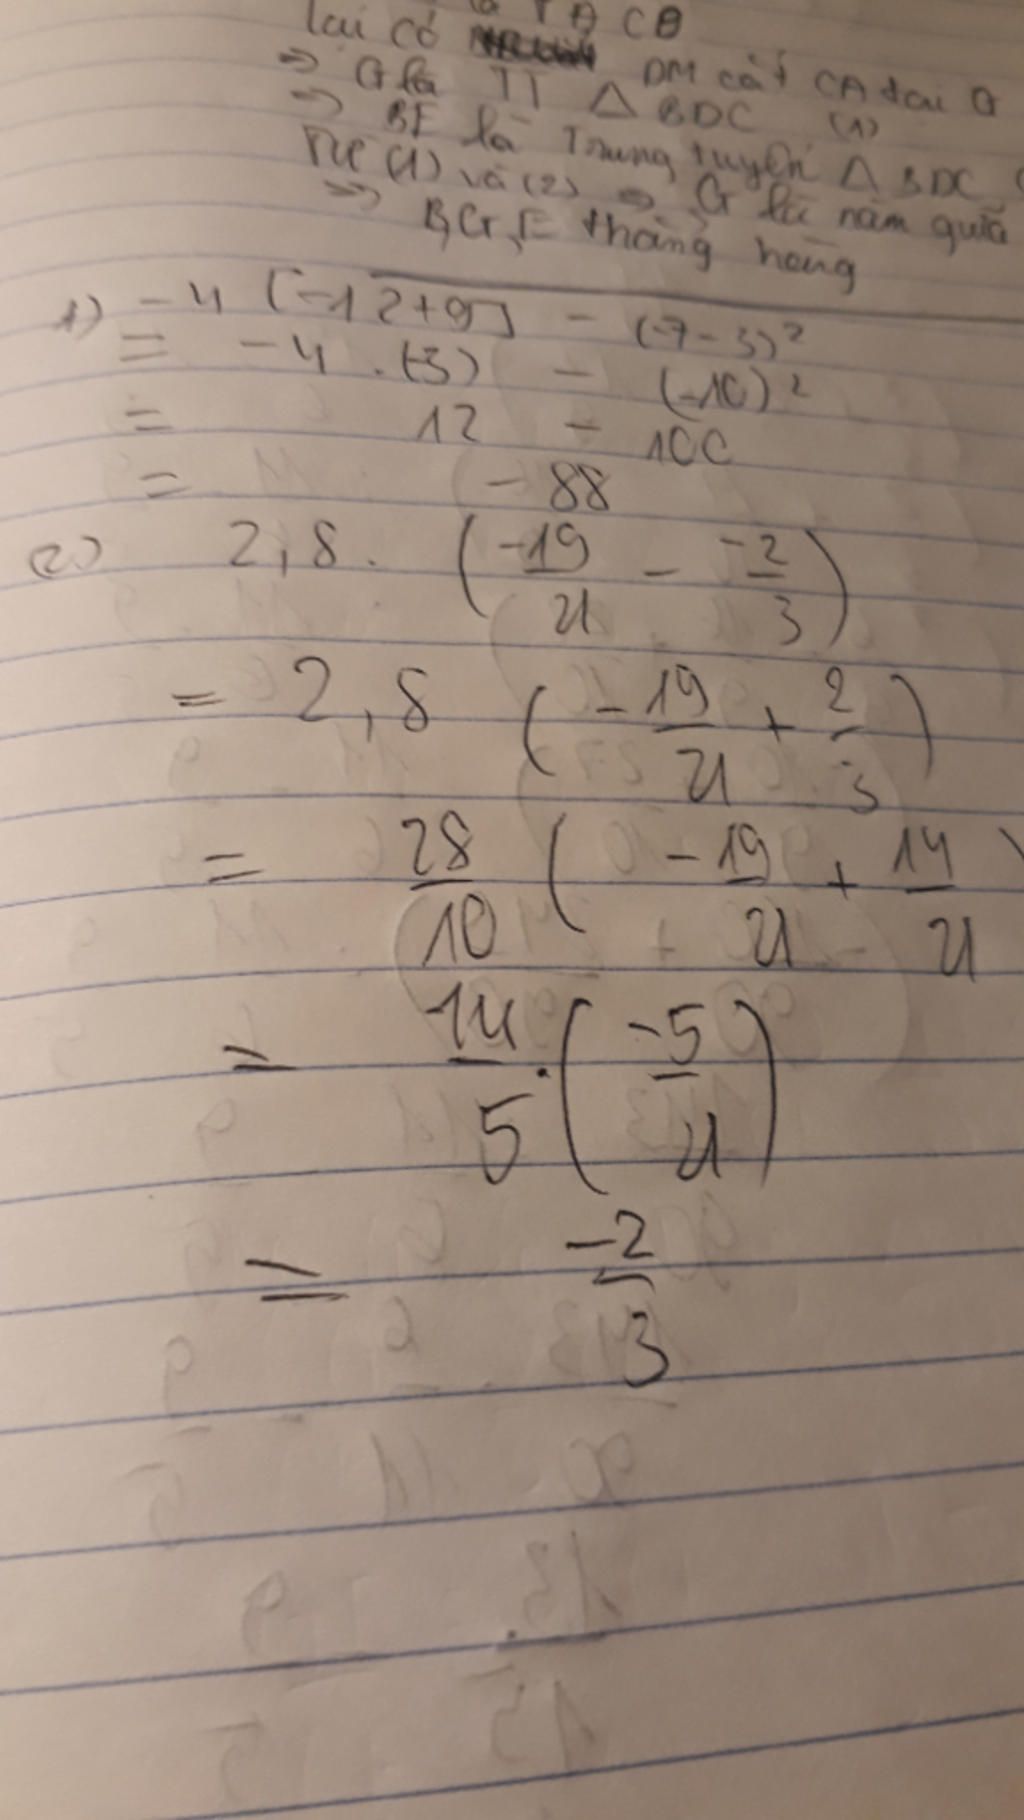 CB
lại có DM cắt CA tại G
=> G là TT △ BDC (1)
=> BE là Trung tuyến △ BDC
Từ (1) và (2) => G là nằm giữa
=> B,G,E thẳng hàng
1) -4 [-12+9] - (-7-3)²
= -4 . (-3) - (-10)²
= 12 - 100
= -88
2) 2,8 . (-19/21 - -2/3)
= 2,8 (-19/21 + 2/3)
= 28/10 (-19/21 + 14/21)
= 14/5 . (-5/21)
= -2/3